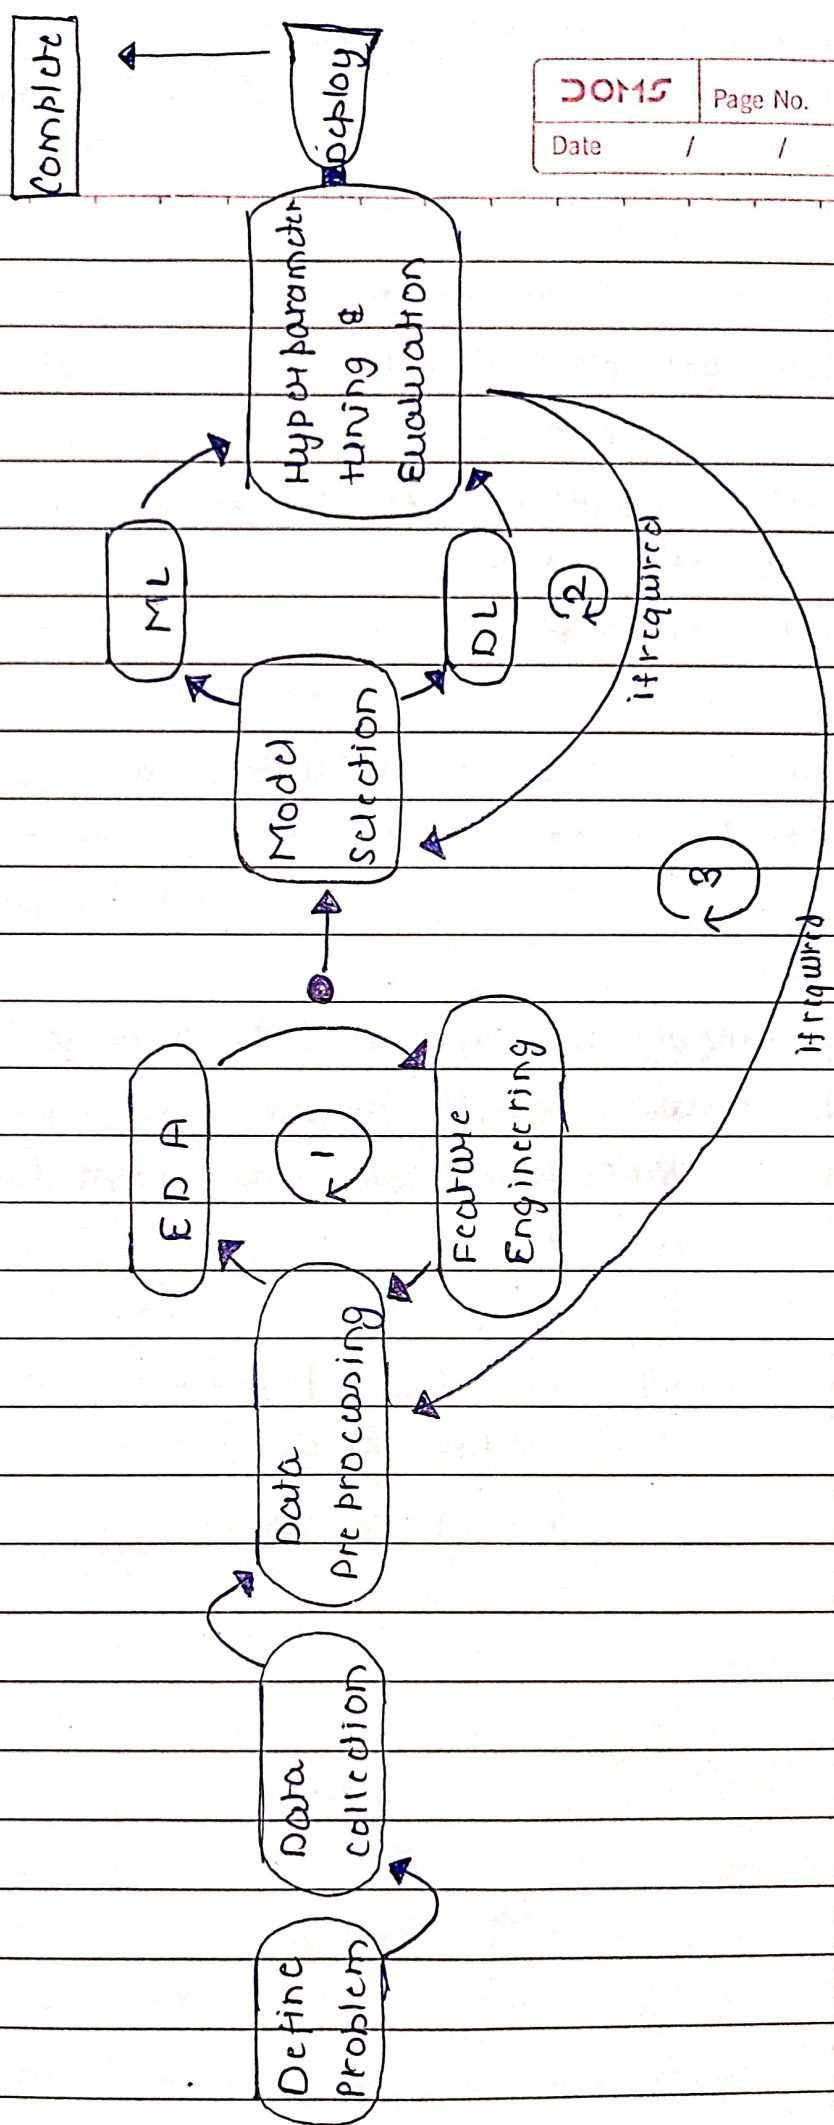 DOMS
Page No.
Date / /
Define
Problem
Data
collection
Data
Pre processing
EDA
1
Feature
Engineering
Model
selection
ML
DL
2
if required
3
if required
Hyperparameter
tuning &
Evaluation
Deploy
Complete